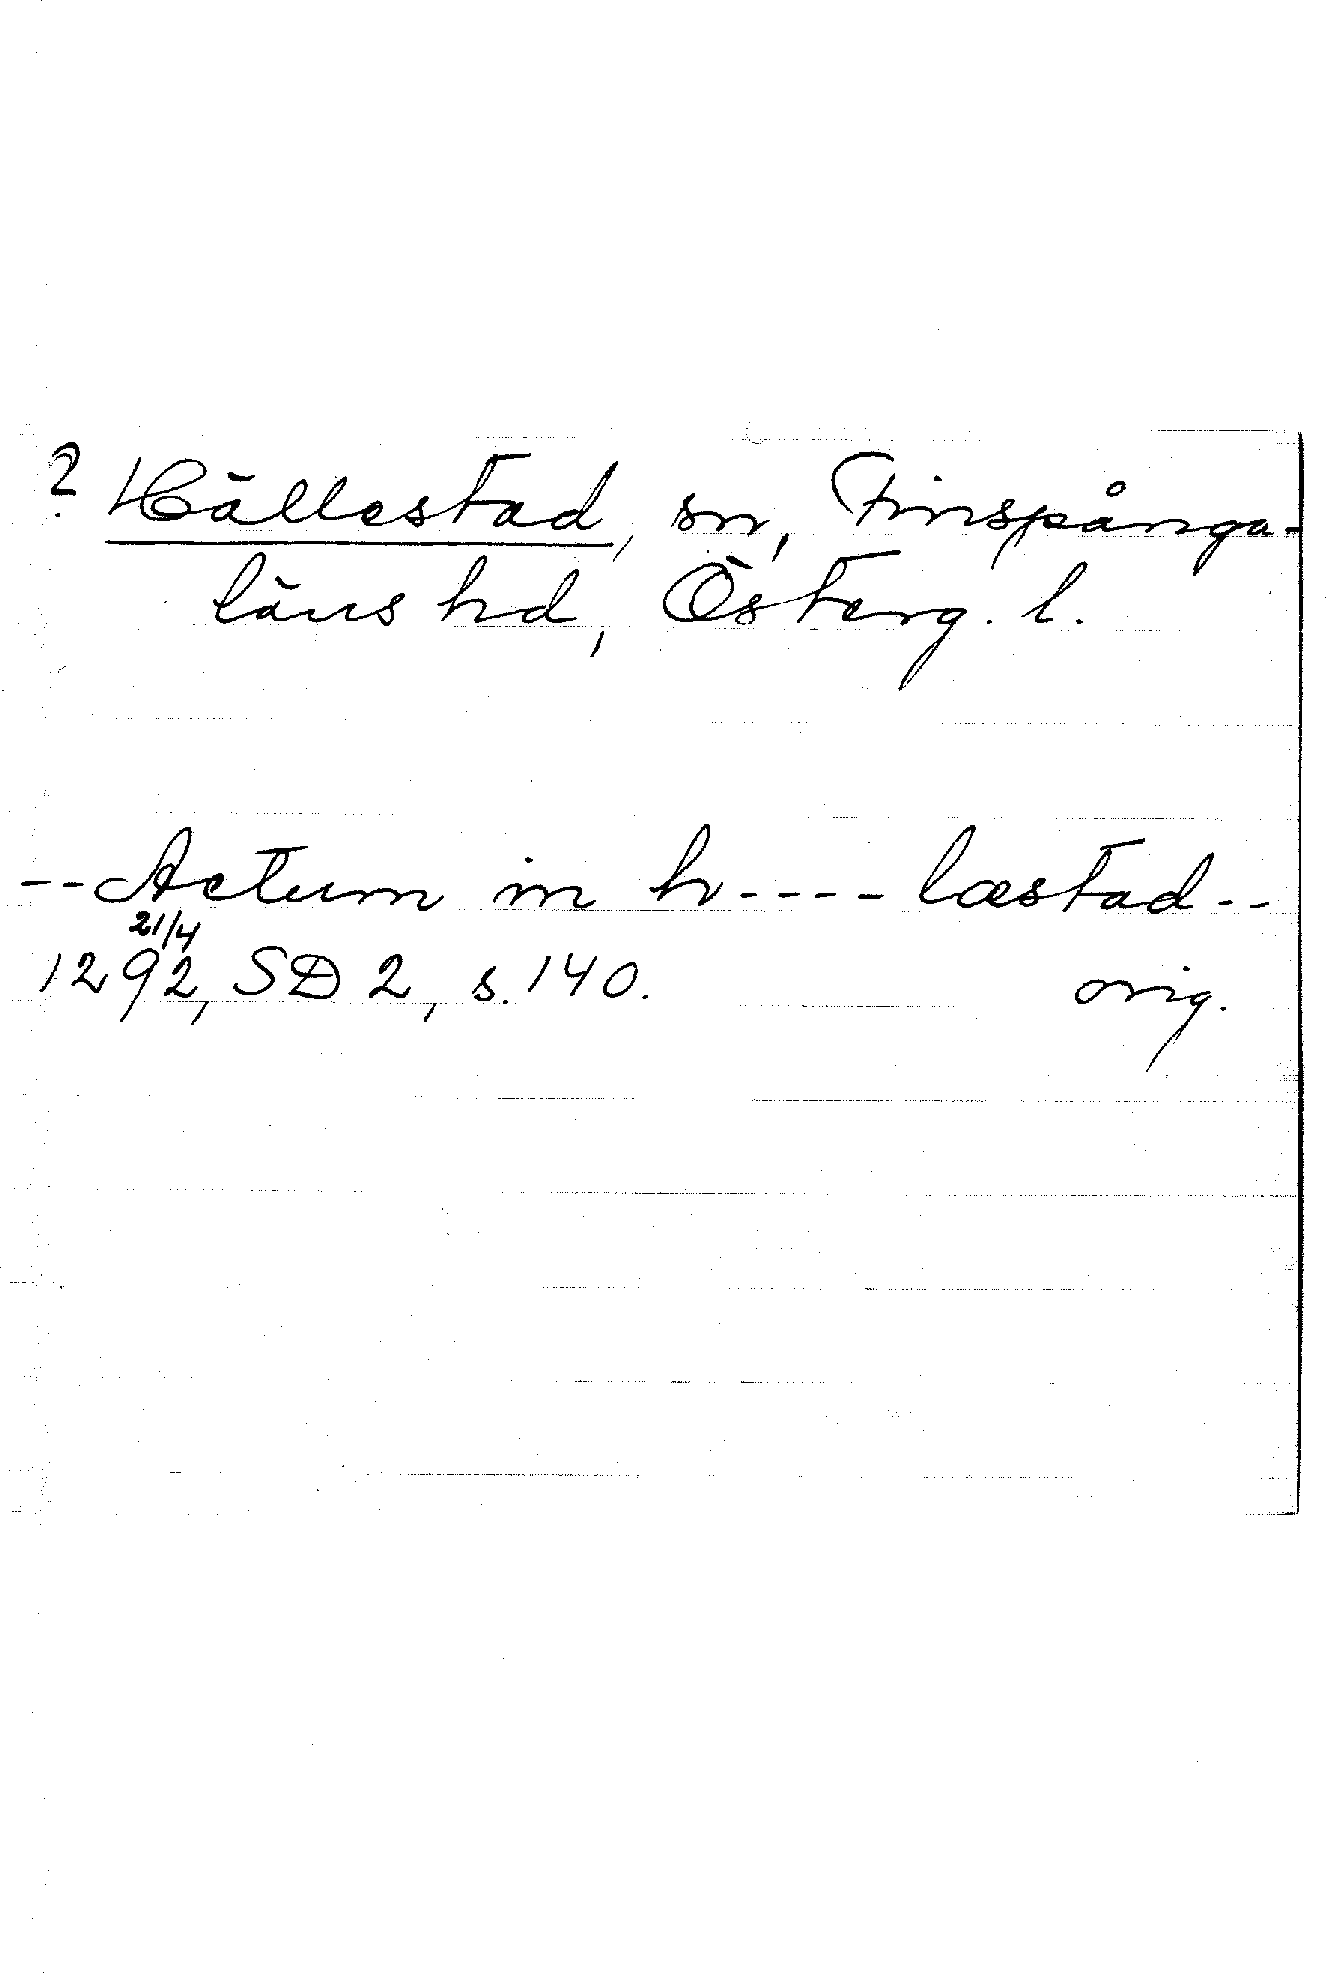 ? Hällestad, sn, Finspånga-
läns hd, Österg. l.
--Actum in h----læstad--
1292 21/4, SD 2, s. 140. orig.